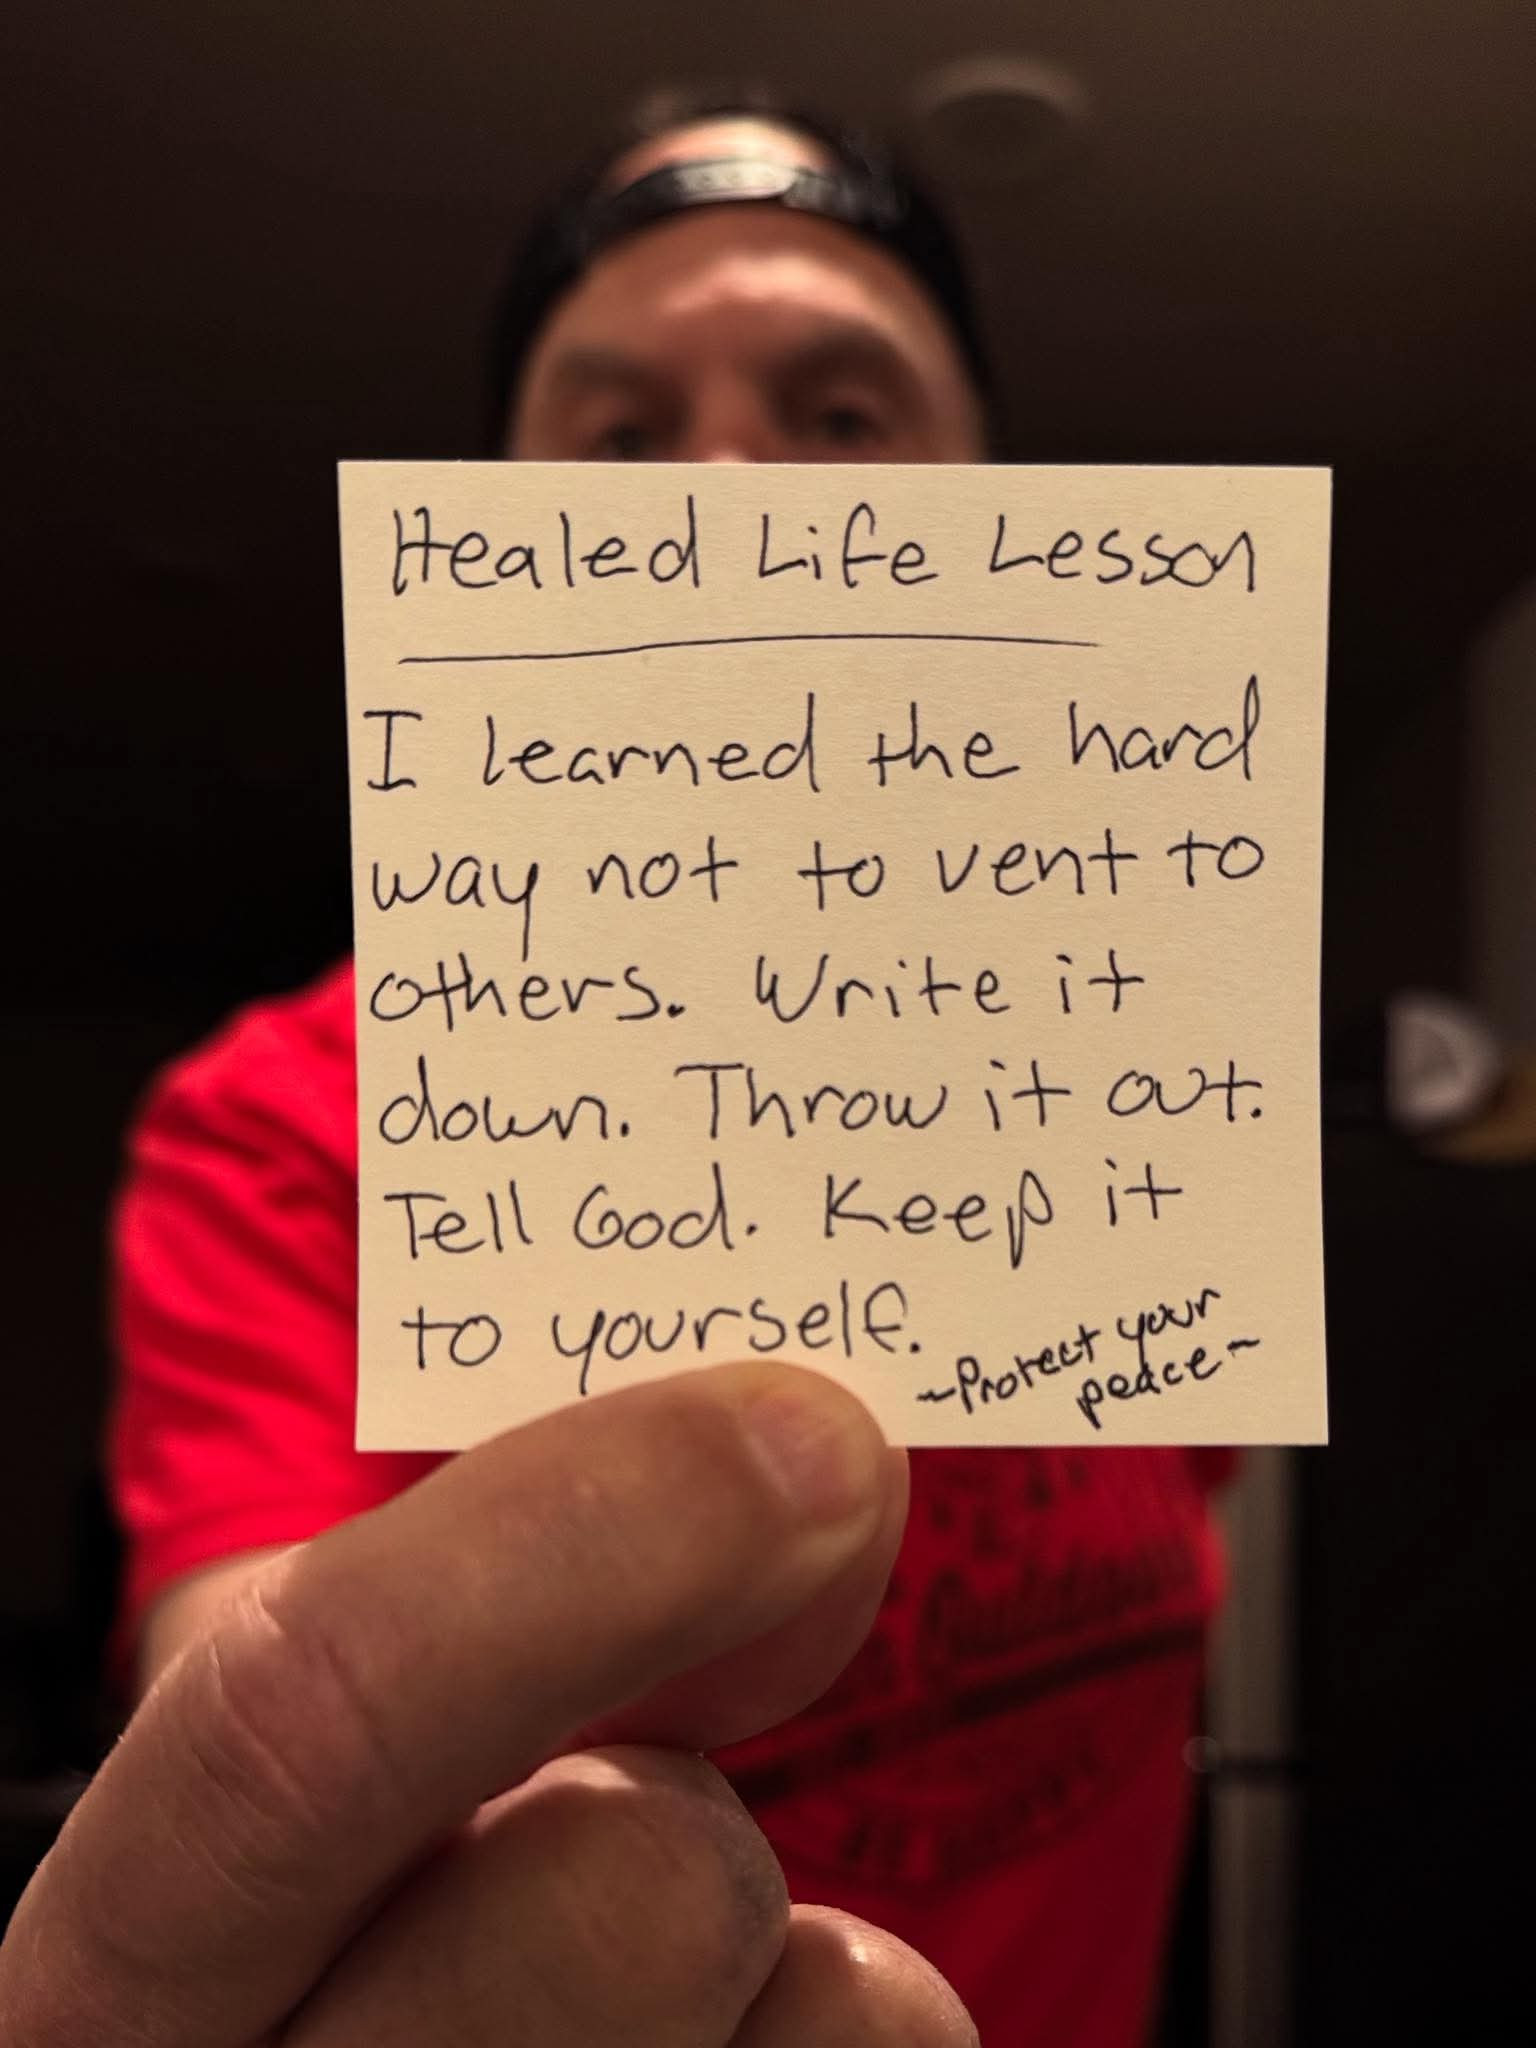 Healed Life Lesson
I learned the hard
way not to vent to
others. Write it
down. Throw it out.
Tell God. Keep it
to yourself.
~Protect your
peace~